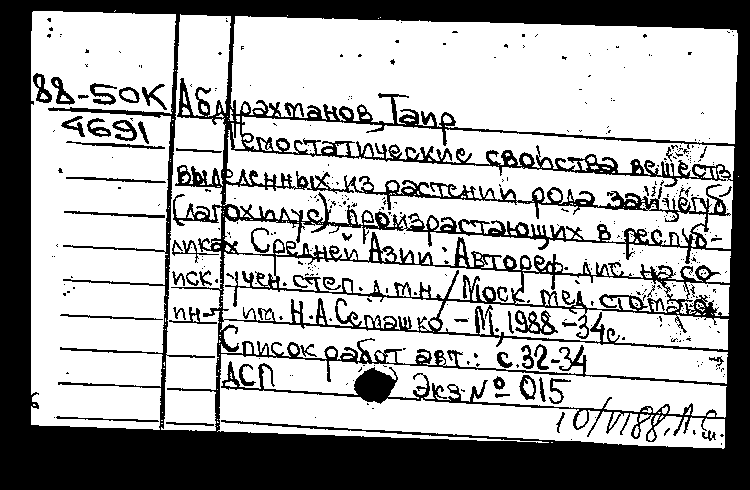 88-50К
4691
Абдурахманов, Таир
Гемостатические свойства веществ,
выделенных из растений рода зайцегуб
(лагохилус), произрастающих в респуб-
ликах Средней Азии : Автореф. дис. на со-
иск. учен. степ. д.м.н. / Моск. мед. стоматол.
ин-т им. Н.А.Семашко. - М., 1988. - 34с.
Список работ авт.: с.32-34
ДСП Экз.№ 015
10/VI 88.